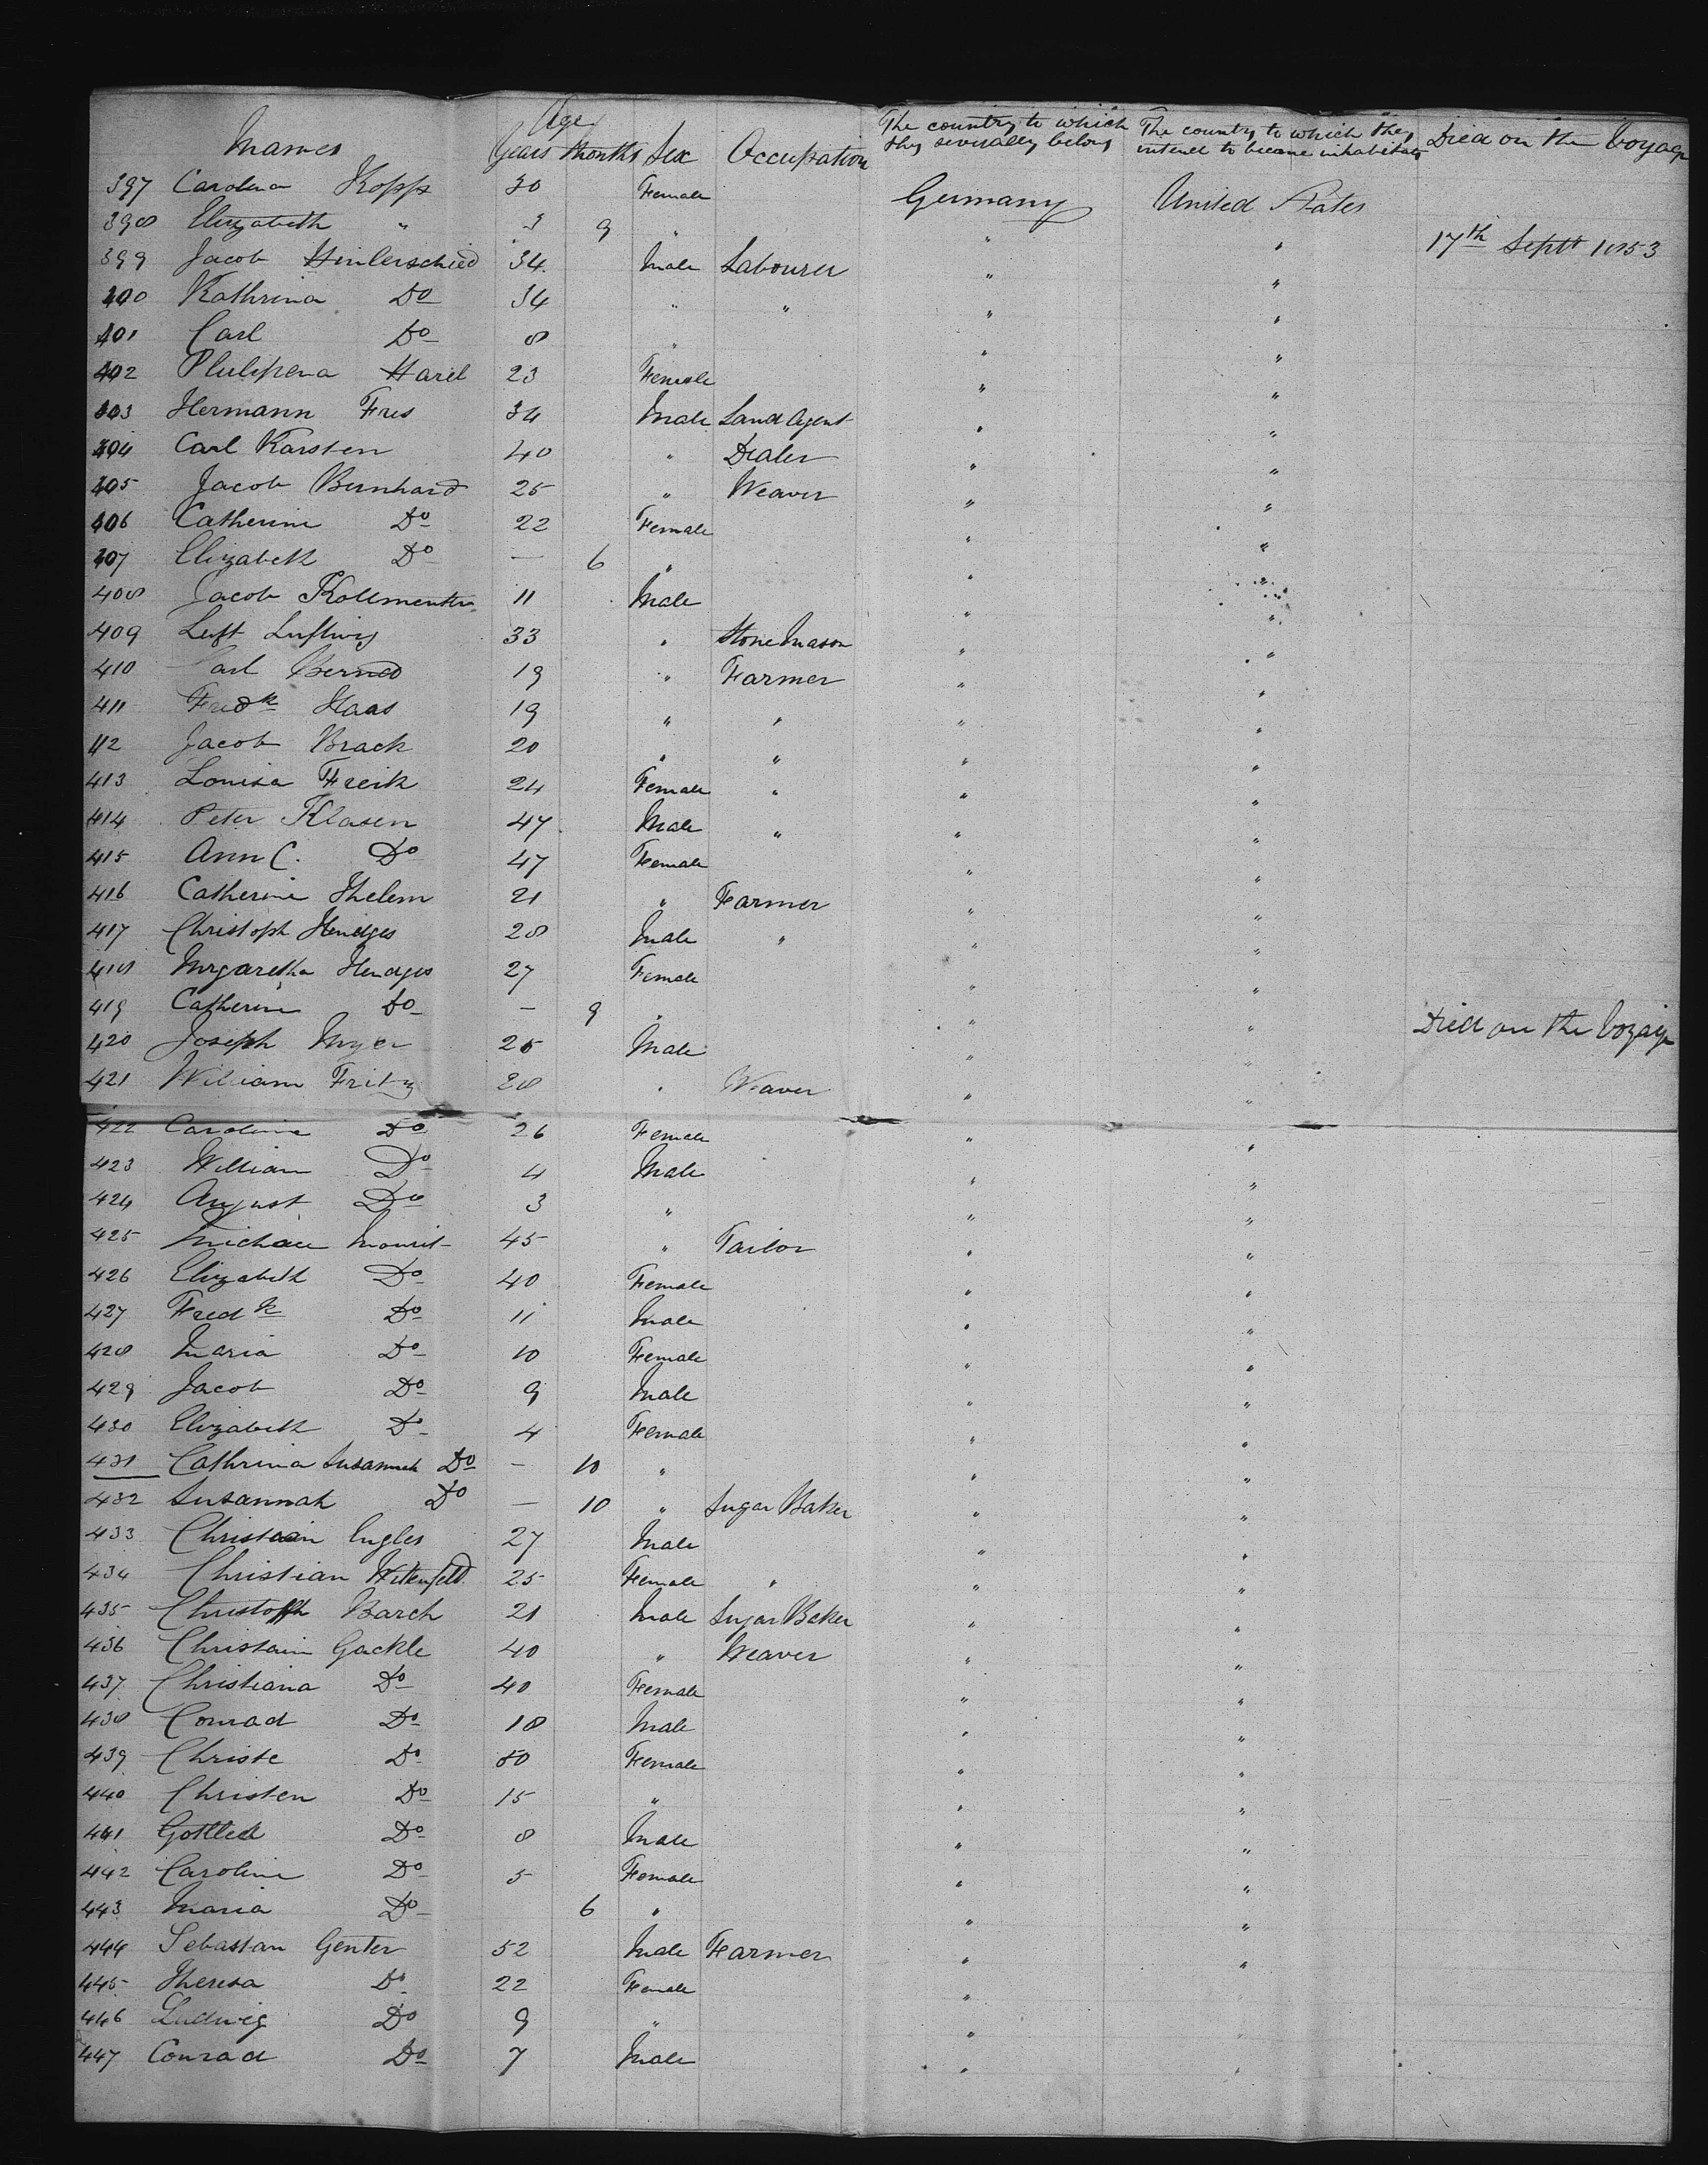 Names Age Years Months Sex Occupation The country to which they severally belong The country to which they intend to become inhabitants Died on the Voyage
397 Carolina Kopp 30 Female Germany United States
398 Elizabeth " 3 9 " " " 17th Sept 1853
399 Jacob Hinlerschied 34 Male Labourer " "
400 Kathrina Do 34 " " " "
401 Carl Do 8 " " "
402 Phulipena Harel 23 Female " "
403 Hermann Fres 34 Male Land Agent " "
404 Carl Karsten 40 " Dealer " "
405 Jacob Bernhard 25 " Weaver " "
406 Catherine Do 22 Female " "
407 Elizabeth Do — 6 " " "
408 Jacob Kollmenter 11 Male " "
409 Luft Luftwig 33 " Stone Mason " "
410 Carl Berned 19 " Farmer " "
411 Fredk Haas 19 " " " "
412 Jacob Brack 20 " " " "
413 Louisa Freik 24 Female " " "
414 Peter Klasen 47 Male " " "
415 Ann C. Do 47 Female " "
416 Catherine Thelem 21 " Farmer " "
417 Christoph Hendges 28 Male " " "
418 Mrgaretha Hendges 27 Female " "
419 Catherine Do — 9 " " " Died on the Voyage
420 Joseph Myer 25 Male " "
421 William Fritz 28 " Weaver " "
422 Caroline Do 26 Female " "
423 William Do 4 Male " "
424 August Do 3 " " "
425 Michael Mourit 45 " Tailor " "
426 Elizabeth Do 40 Female " "
427 Fredk Do 11 Male " "
428 Maria Do 10 Female " "
429 Jacob Do 9 Male " "
430 Elizabeth Do 4 Female " "
431 Cathrina Susannah Do — 10 " " "
432 Susannah Do — 10 " Sugar Baker " "
433 Christain Engles 27 Male " "
434 Christian Wittenfeld 25 Female " " "
435 Christoph Barch 21 Male Sugar Baker " "
436 Christain Gackle 40 " Weaver " "
437 Christiana Do 40 Female " "
438 Conrad Do 18 Male " "
439 Christe Do 50 Female " "
440 Christen Do 15 " " "
441 Gottled Do 8 Male " "
442 Caroline Do 5 Female " "
443 Maria Do 6 " " "
444 Sebastan Genter 52 Male Farmer " "
445 Theresa Do 22 Female "
446 Ludwig Do 9 " " "
447 Conrad Do 7 Male " "